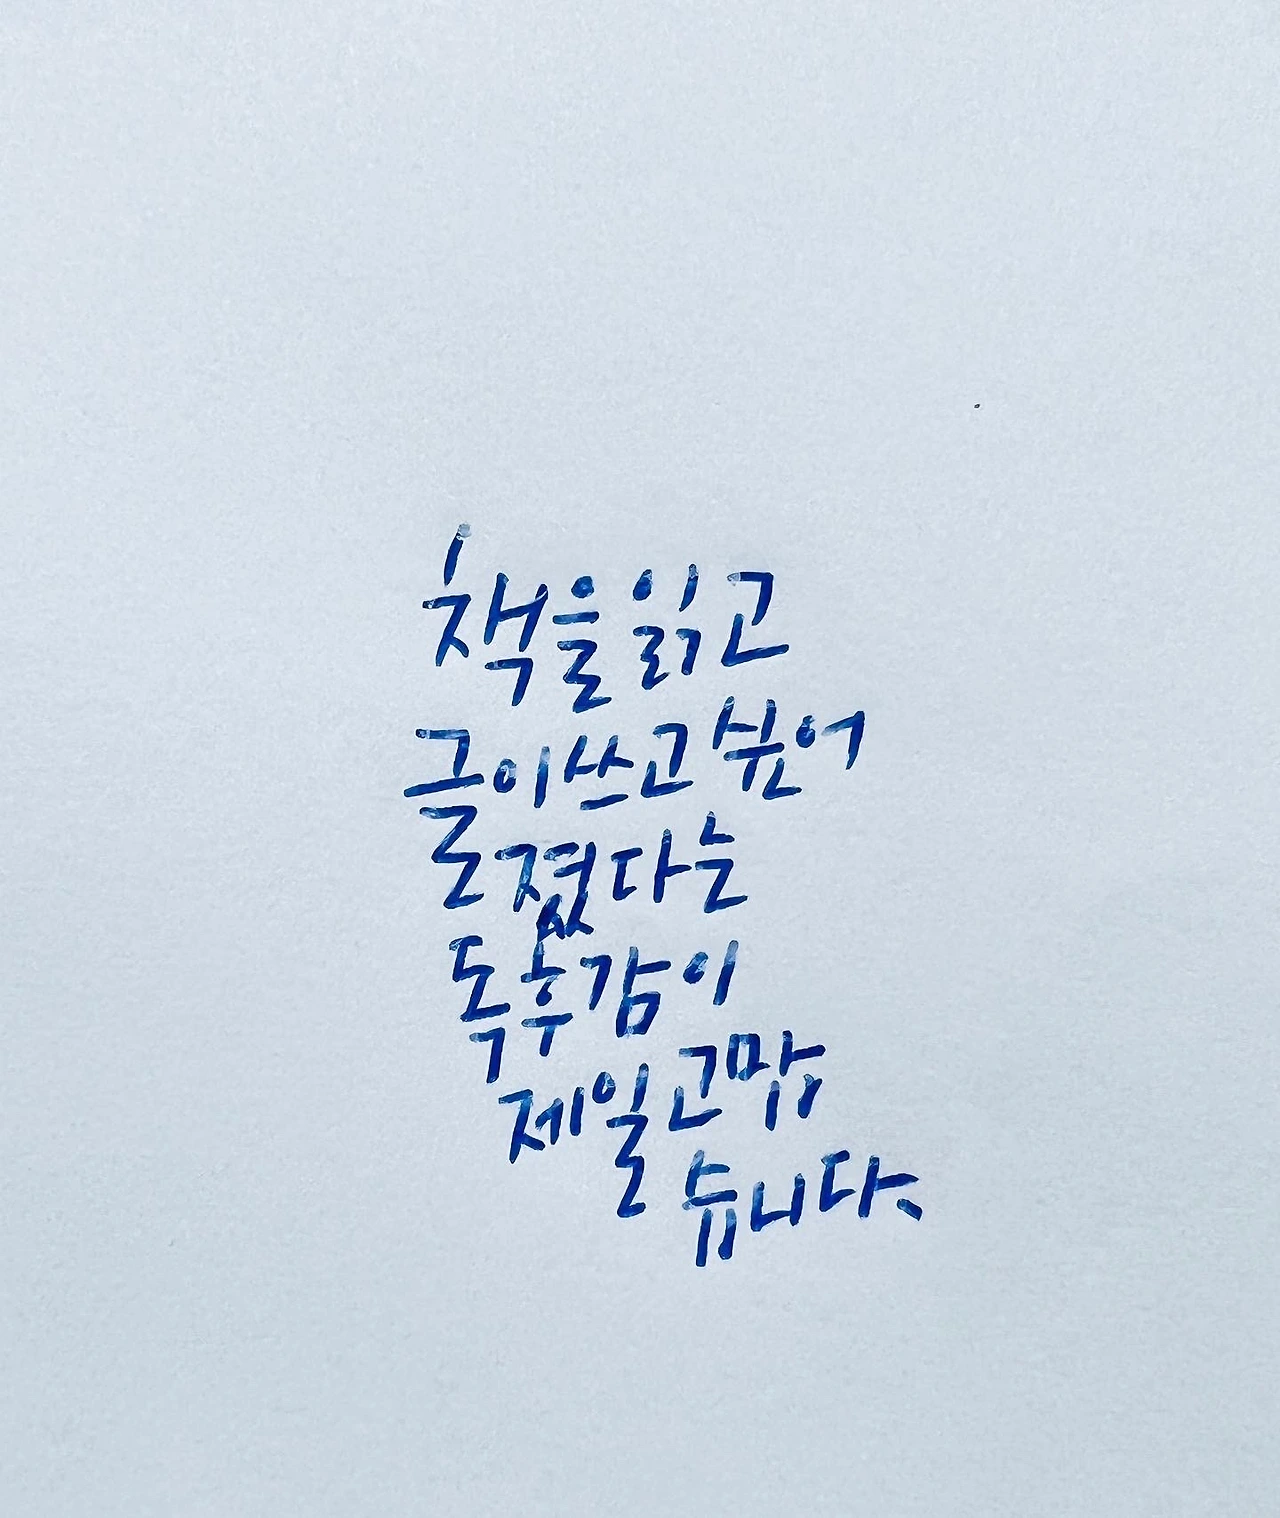 책을 읽고
글이 쓰고 싶어
졌다는
독후감이
제일 고맙
습니다.